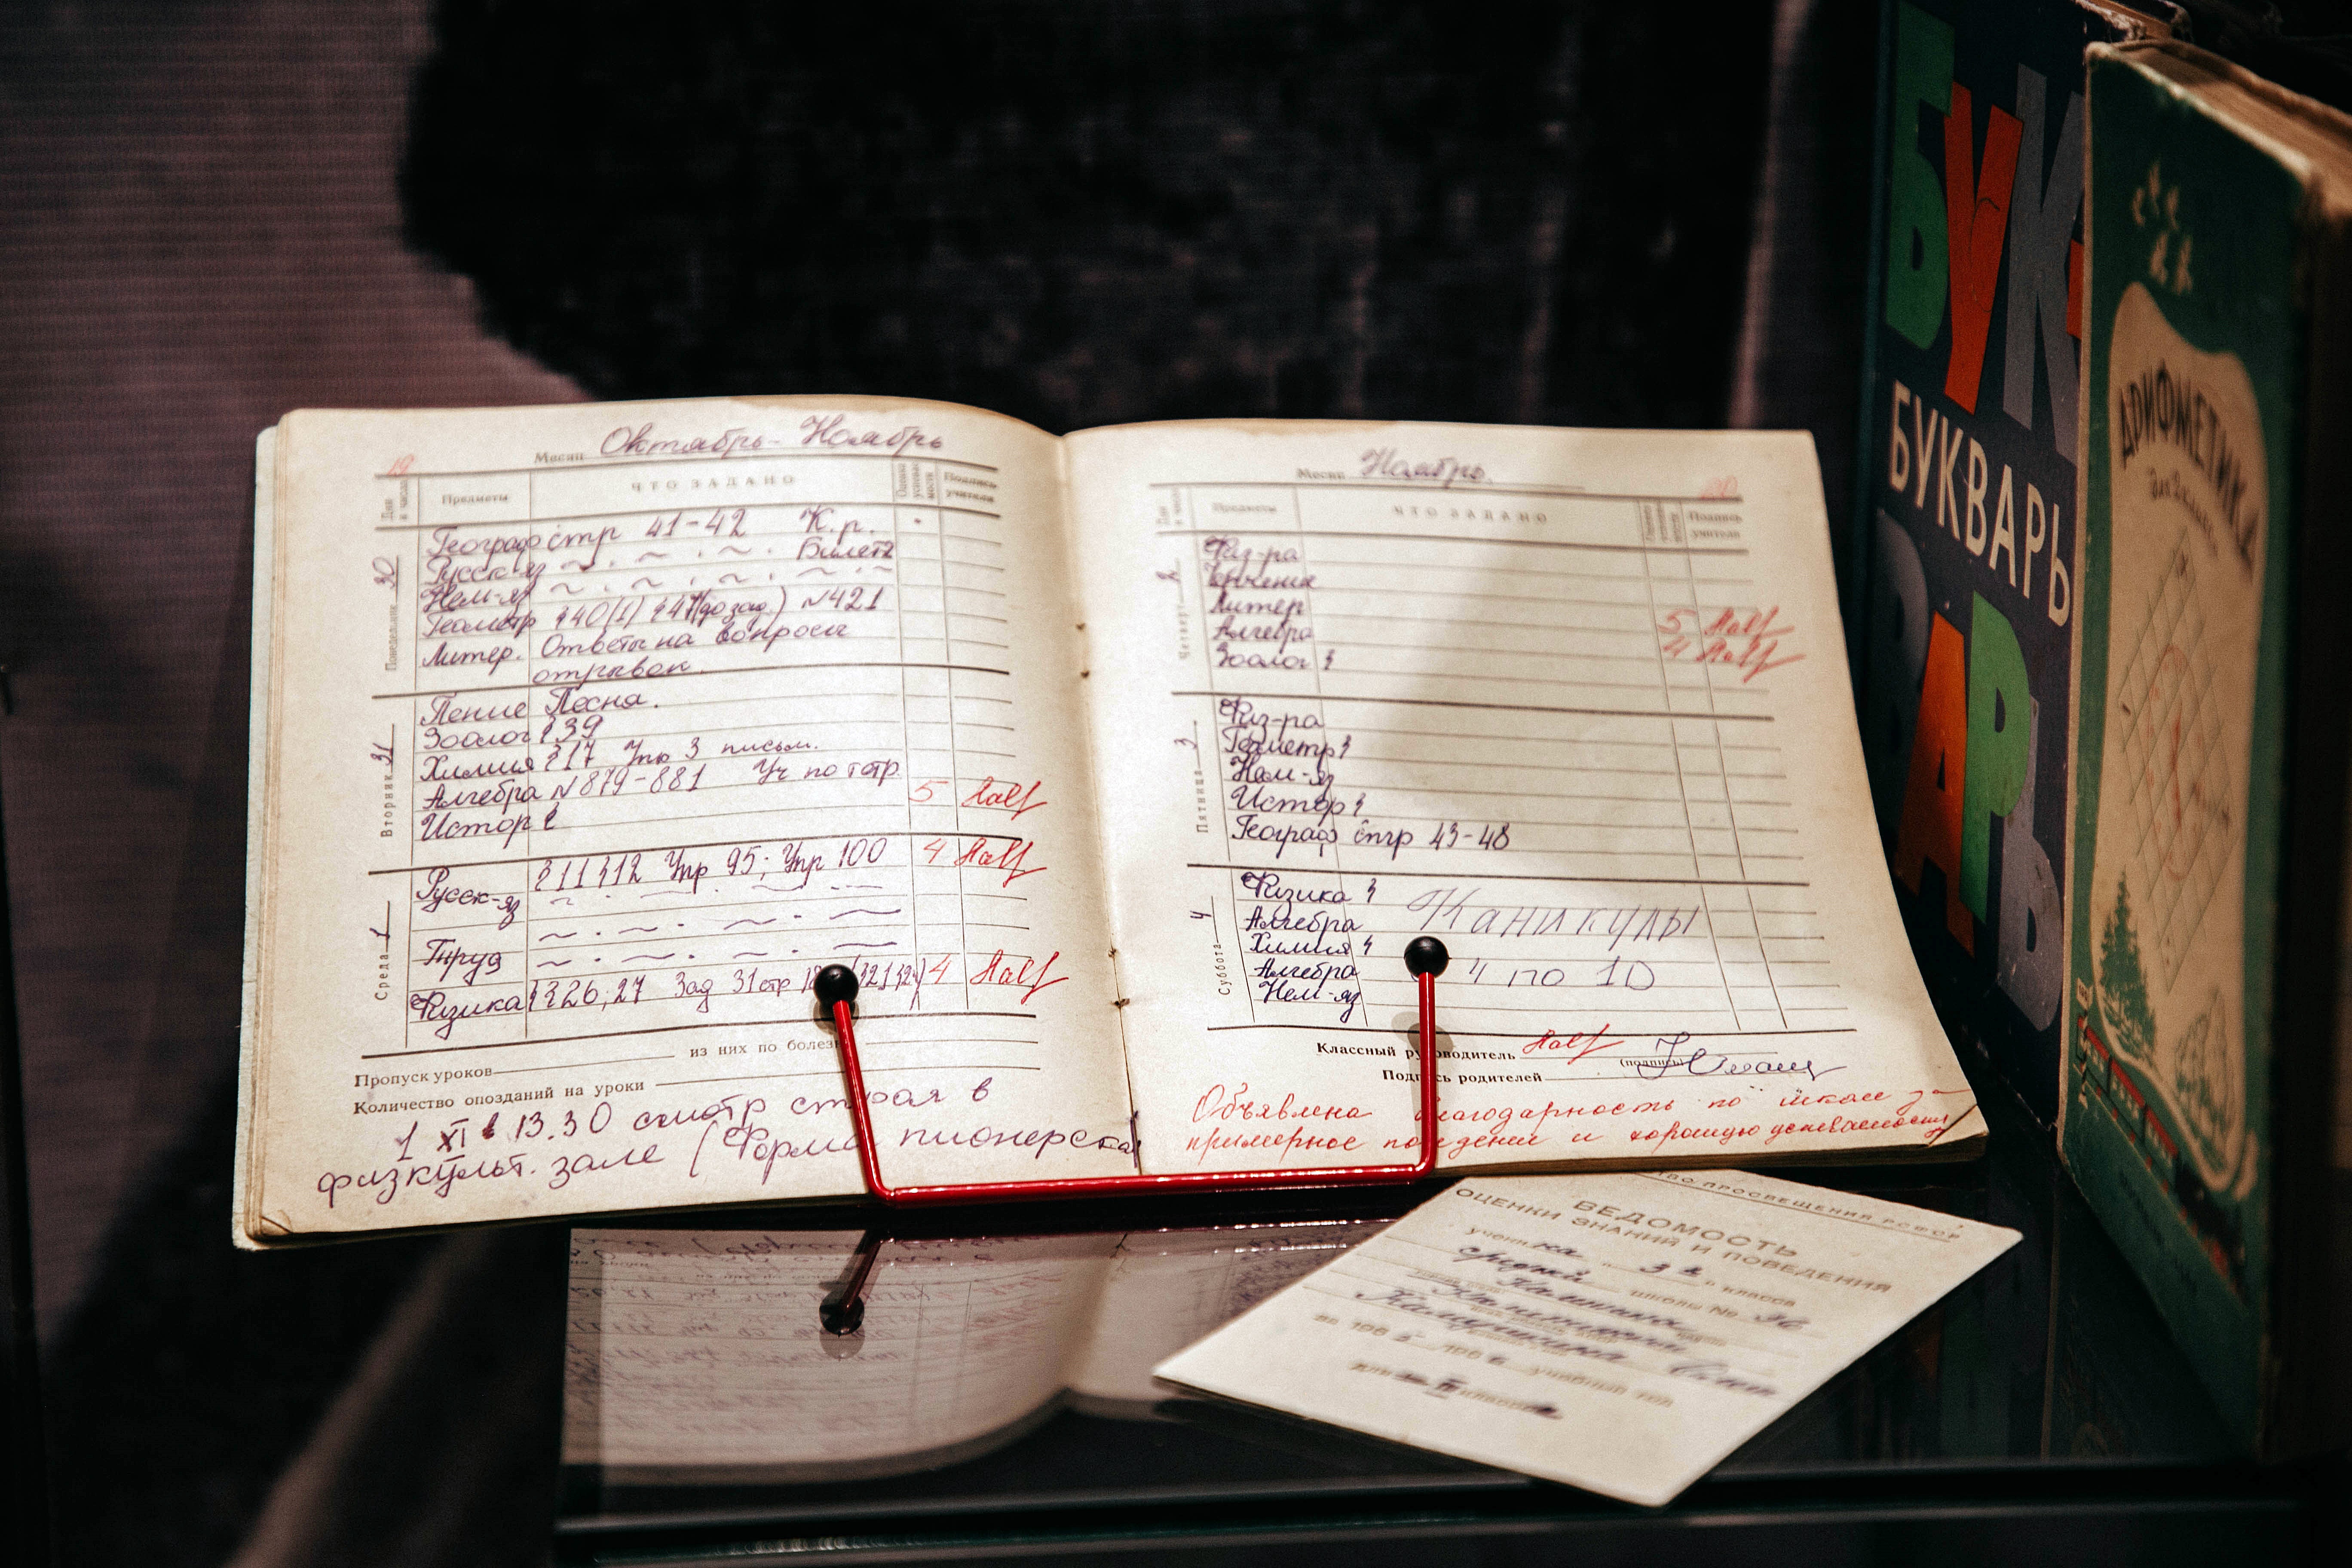 Месяц Октябрь - Ноябрь
19
Дни и числа Предметы ЧТО ЗАДАНО Оценка успевае мости Подпись учителя
Понедельник 30
Географ стр 41-42 К.р.
Русск-яз ~ . ~ . Билет
Нем-яз ~ . ~ . ~ . ~ . ~
Геометр §40(1) §41(до зад.) №421
Литер. Ответы на вопросы
отрывок.
Вторник 31
Пение Песня.
Зоолог § 39
Химия §17 Упр 3 письм.
Алгебра №879-881 Уч по тетр 5
Истор §
Среда 1
Русск-яз §11 §12 Упр 95; Упр 100 4
Труд
Физика §§26,27 Зад 31 стр 4
Пропуск уроков из них по болез
Количество опозданий на уроки
1 XI в 13.30 смотр строя в
физкульт. зале (Форма пионерская
Месяц Ноябрь.
20
Дни и числа Предметы ЧТО ЗАДАНО Подпись учителя
Четверг 2
Физ-ра
Черчение
Литер
Алгебра 5
Зоолог § 4
Пятница 3
Физ-ра
Геометр §
Нем-яз
Истор §
Географ стр 43-48
Суббота 4
Физика § Каникулы
Алгебра
Химия §
Алгебра 4 по 10
Нем-яз
Классный руководитель (подпись)
Подпись родителей
Объявлена благодарность по школе за
примерное поведение и хорошую успеваемость
БУК
БУКВАРЬ
ВАРЬ
АРИФМЕТИКА
для 2 класса
ТВО ПРОСВЕЩЕНИЯ РСФСР
ВЕДОМОСТЬ
ОЦЕНКИ ЗНАНИЙ И ПОВЕДЕНИЯ
ученика 3 класса
средней школы № 36
на 1965 1966 учебный год